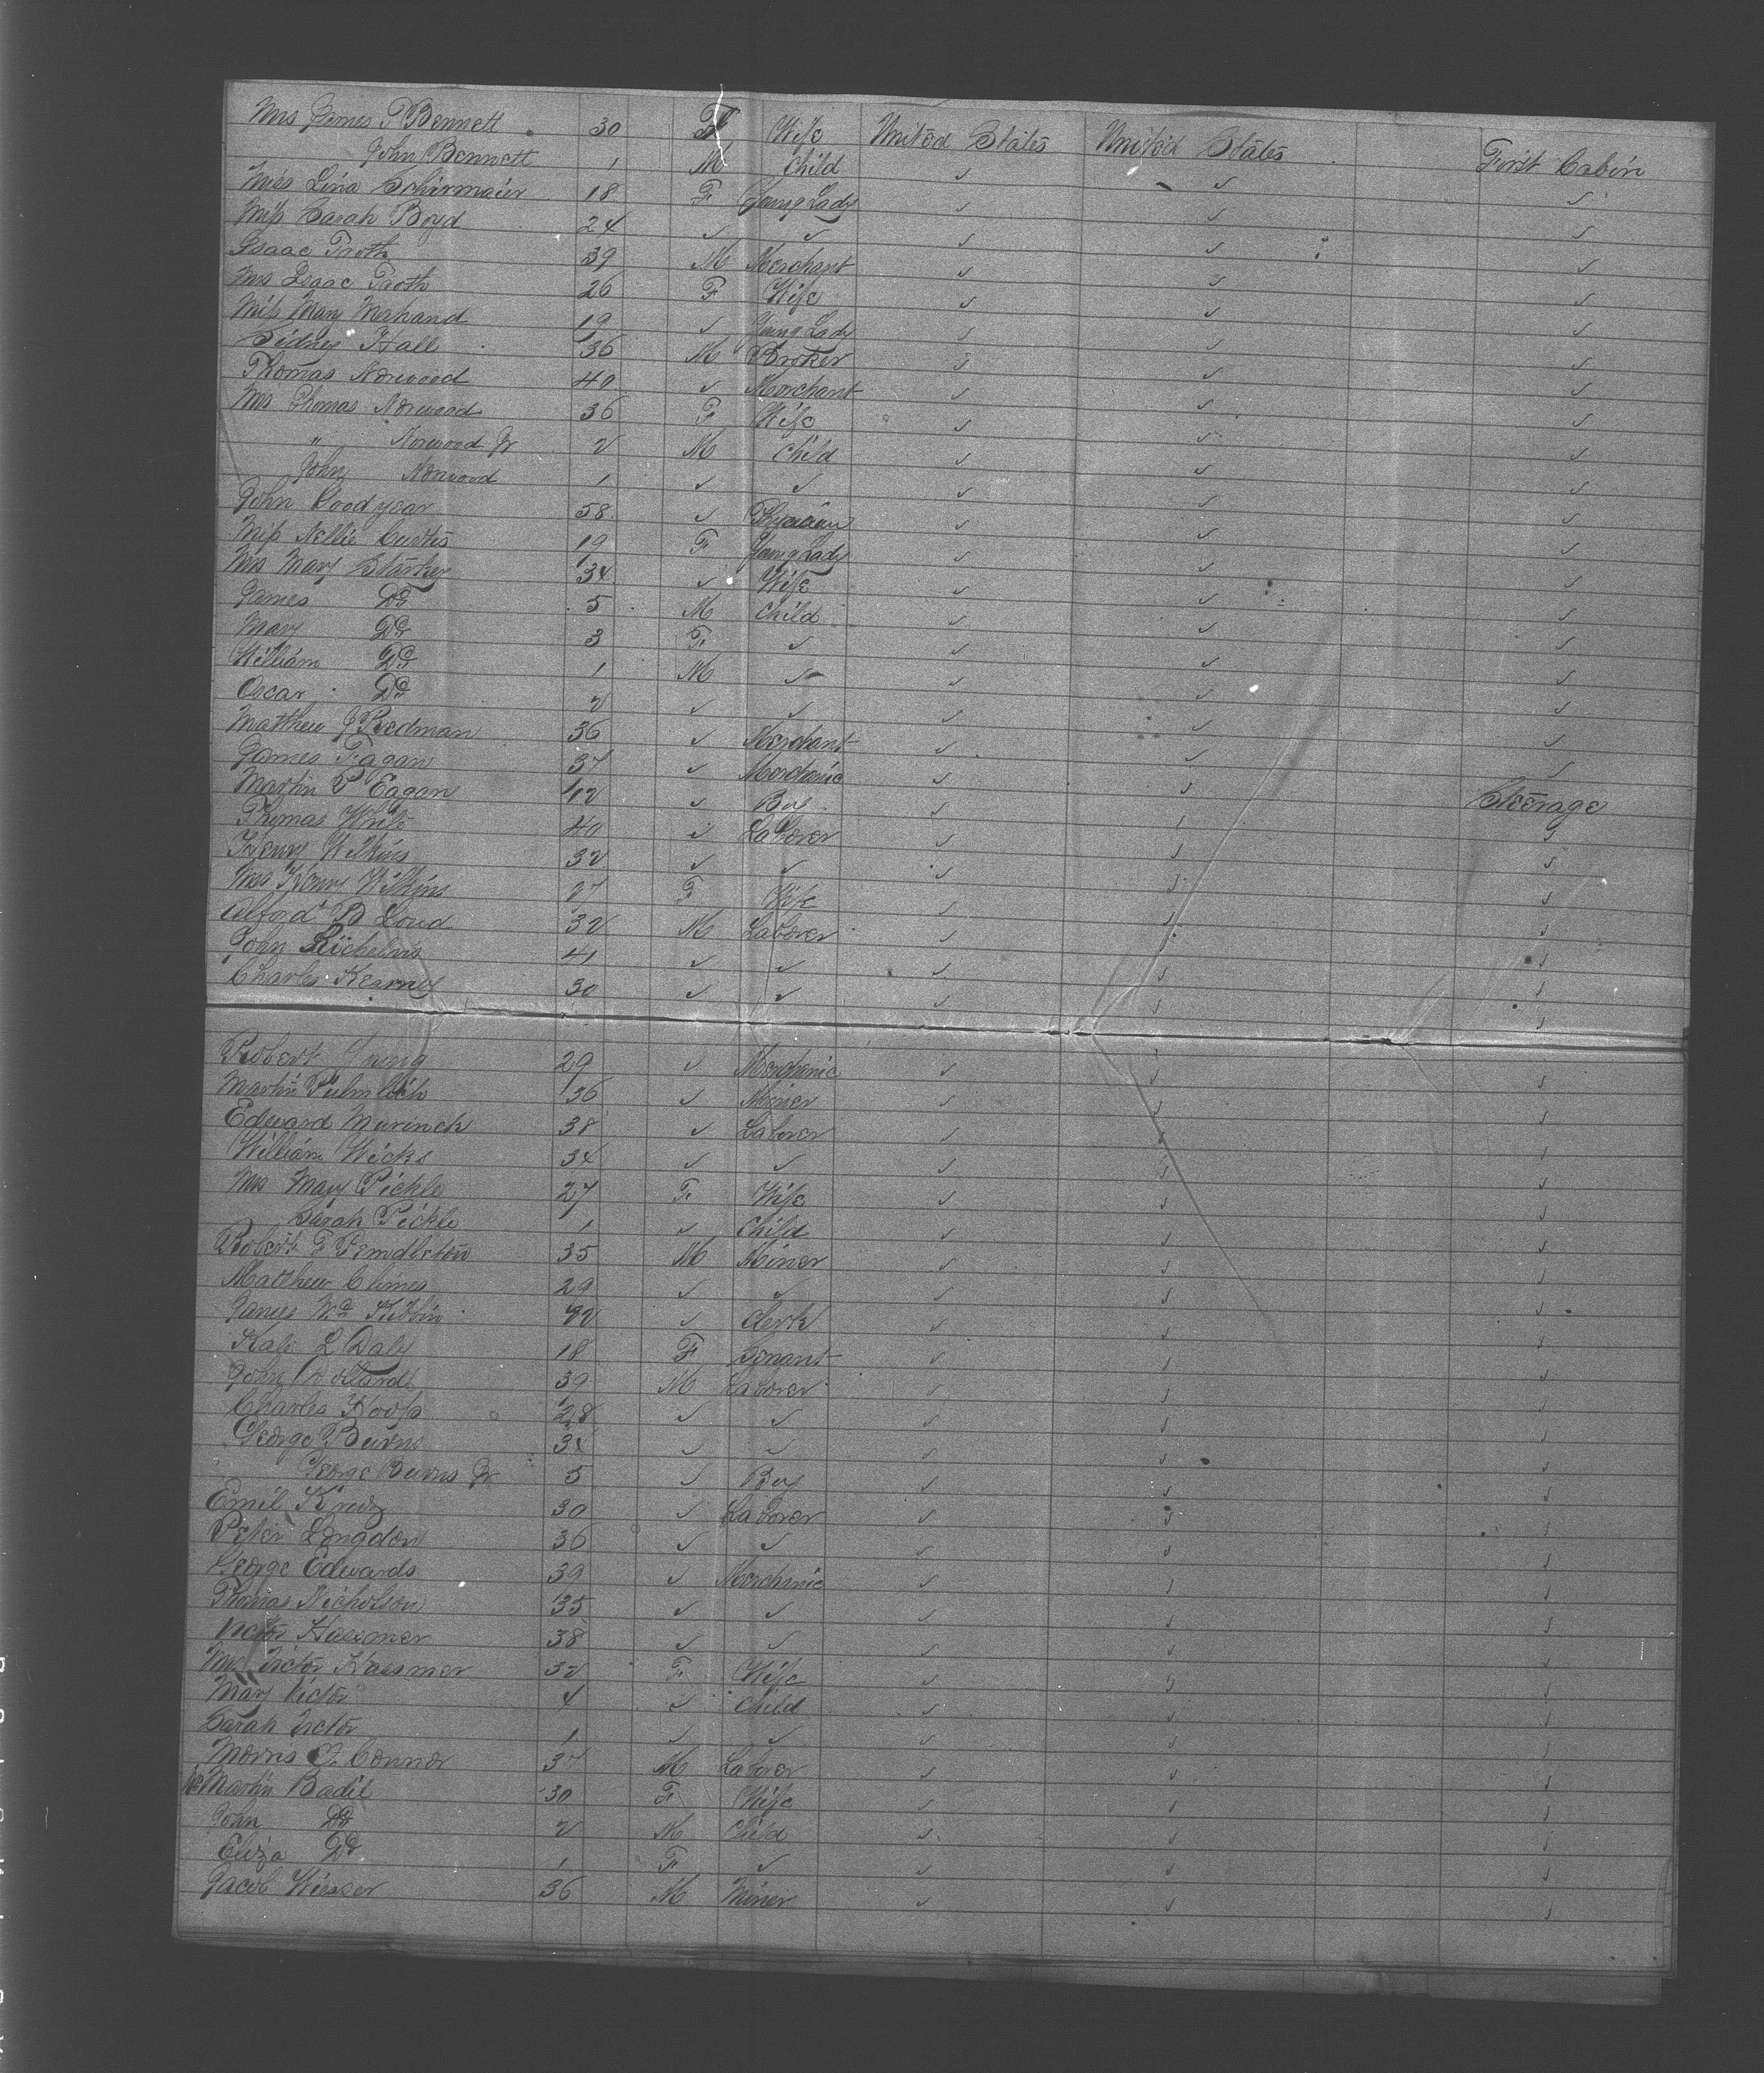 Mrs James P Bennett 30 F Wife United States United States First Cabin
John Bennett 1 M Child ✓ ✓ ✓
Miss Lina Schirmaier 18 F Young Lady ✓ ✓ ✓
Miss Sarah Boyd 24 ✓ ✓ ✓ ✓ ✓
Isaac Troth 39 M Merchant ✓ ✓ ✓
Mrs Isaac Troth 26 F Wife ✓ ✓ ✓
Miss Mary Mahand 19 ✓ Young Lady ✓ ✓ ✓
Sidney Hall 36 M Broker ✓ ✓ ✓
Thomas Norwood 40 ✓ Merchant ✓ ✓ ✓
Mrs Thomas Norwood 36 F Wife ✓ ✓ ✓
" Norwood Jr 2 M Child ✓ ✓ ✓
John Norwood 1 ✓ ✓ ✓ ✓ ✓
John Goodyear 58 ✓ ✓ ✓ ✓
Miss Nellie Curtis 19 F Young Lady ✓ ✓ ✓
Mrs Mary Starkey 34 ✓ Wife ✓ ✓ ✓
James Do 5 M Child ✓ ✓ ✓
Mary Do 3 F ✓ ✓ ✓ ✓
William Do 1 M ✓ ✓ ✓ ✓
Oscar Do 2 ✓ ✓ ✓ ✓ ✓
Matthew J Redman 36 ✓ Merchant ✓ ✓ ✓
James Fagan 37 ✓ Mechanic ✓ ✓ Steerage
Martin P Eagan 12 ✓ Boy ✓ ✓ ✓
Thomas White 40 ✓ Laborer ✓ ✓ ✓
Henry Wilkins 32 ✓ ✓ ✓ ✓ ✓
Mrs Henry Wilkins 27 F Wife ✓ ✓ ✓
Alford B Loud 32 M Laborer ✓ ✓ ✓
John 41 ✓ ✓ ✓ ✓ ✓
Charles Kearney 30 ✓ ✓ ✓ ✓ ✓
Robert 29 ✓ Mechanic ✓ ✓ ✓
Martin 36 ✓ Miner ✓ ✓ ✓
Edward Murinck 38 ✓ Laborer ✓ ✓ ✓
William Wicks 34 ✓ ✓ ✓ ✓ ✓
Mrs Mary Pickle 27 F Wife ✓ ✓ ✓
Sarah Pickle 1 ✓ Child ✓ ✓ ✓
Robert F Pendleton 35 M Miner ✓ ✓ ✓
Matthew Climes 29 ✓ ✓ ✓ ✓ ✓
James 42 ✓ Clerk ✓ ✓ ✓
Kate L Daly 18 F Servant ✓ ✓ ✓
John 39 M Laborer ✓ ✓ ✓
Charles 28 ✓ ✓ ✓ ✓ ✓
George Burns 34 ✓ ✓ ✓ ✓ ✓
George Burns Jr 5 ✓ Boy ✓ ✓ ✓
Emil Kruz 30 ✓ Laborer ✓ ✓ ✓
Peter Longdon 36 ✓ ✓ ✓ ✓ ✓
George Edwards 39 ✓ Mechanic ✓ ✓ ✓
Thomas Nicholson 35 ✓ ✓ ✓ ✓ ✓
Victor Hassmer 38 ✓ ✓ ✓ ✓ ✓
Mrs Victor Hassmer 32 F Wife ✓ ✓ ✓
Mary Victor 4 ✓ Child ✓ ✓ ✓
Sarah Victor 1 ✓ ✓ ✓ ✓ ✓
Morris O. Connor 37 M Laborer ✓ ✓ ✓
Mrs Martin Badil 30 F Wife ✓ ✓ ✓
John Do 2 M Child ✓ ✓ ✓
Eliza Do 1 F ✓ ✓ ✓ ✓
Jacob 36 M Miner ✓ ✓ ✓